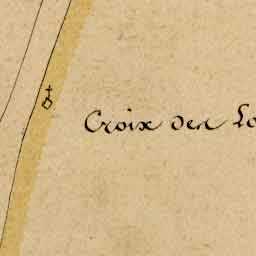 Croix des Lo